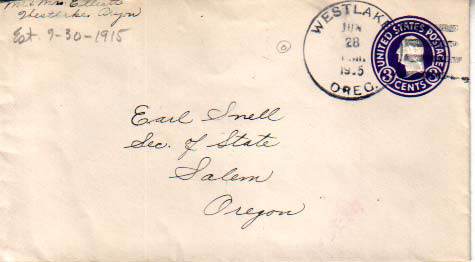 Mrs Mr. Elliott
Westlake, Oregon
Est. 9-30-1915
WESTLAKE
JUN
28
OREG.
UNITED STATES POSTAGE
3 CENTS 3
Earl Snell
Sec. of State
Salem
Oregon